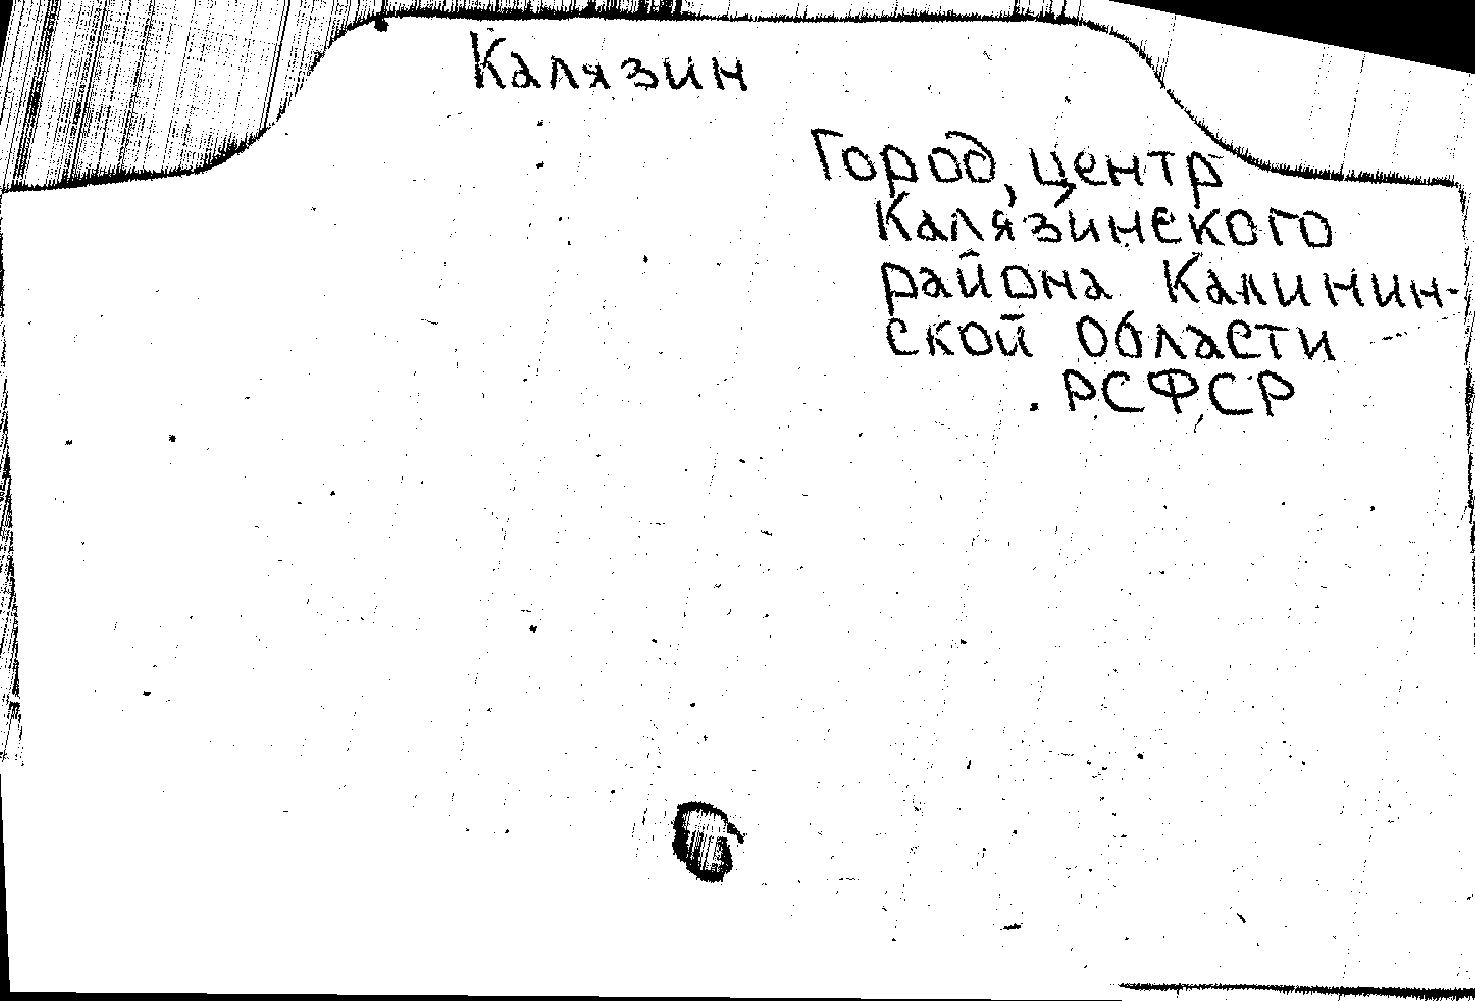 Калязин
Город, центр
Калязинского
района Калинин-
ской области
РСФСР